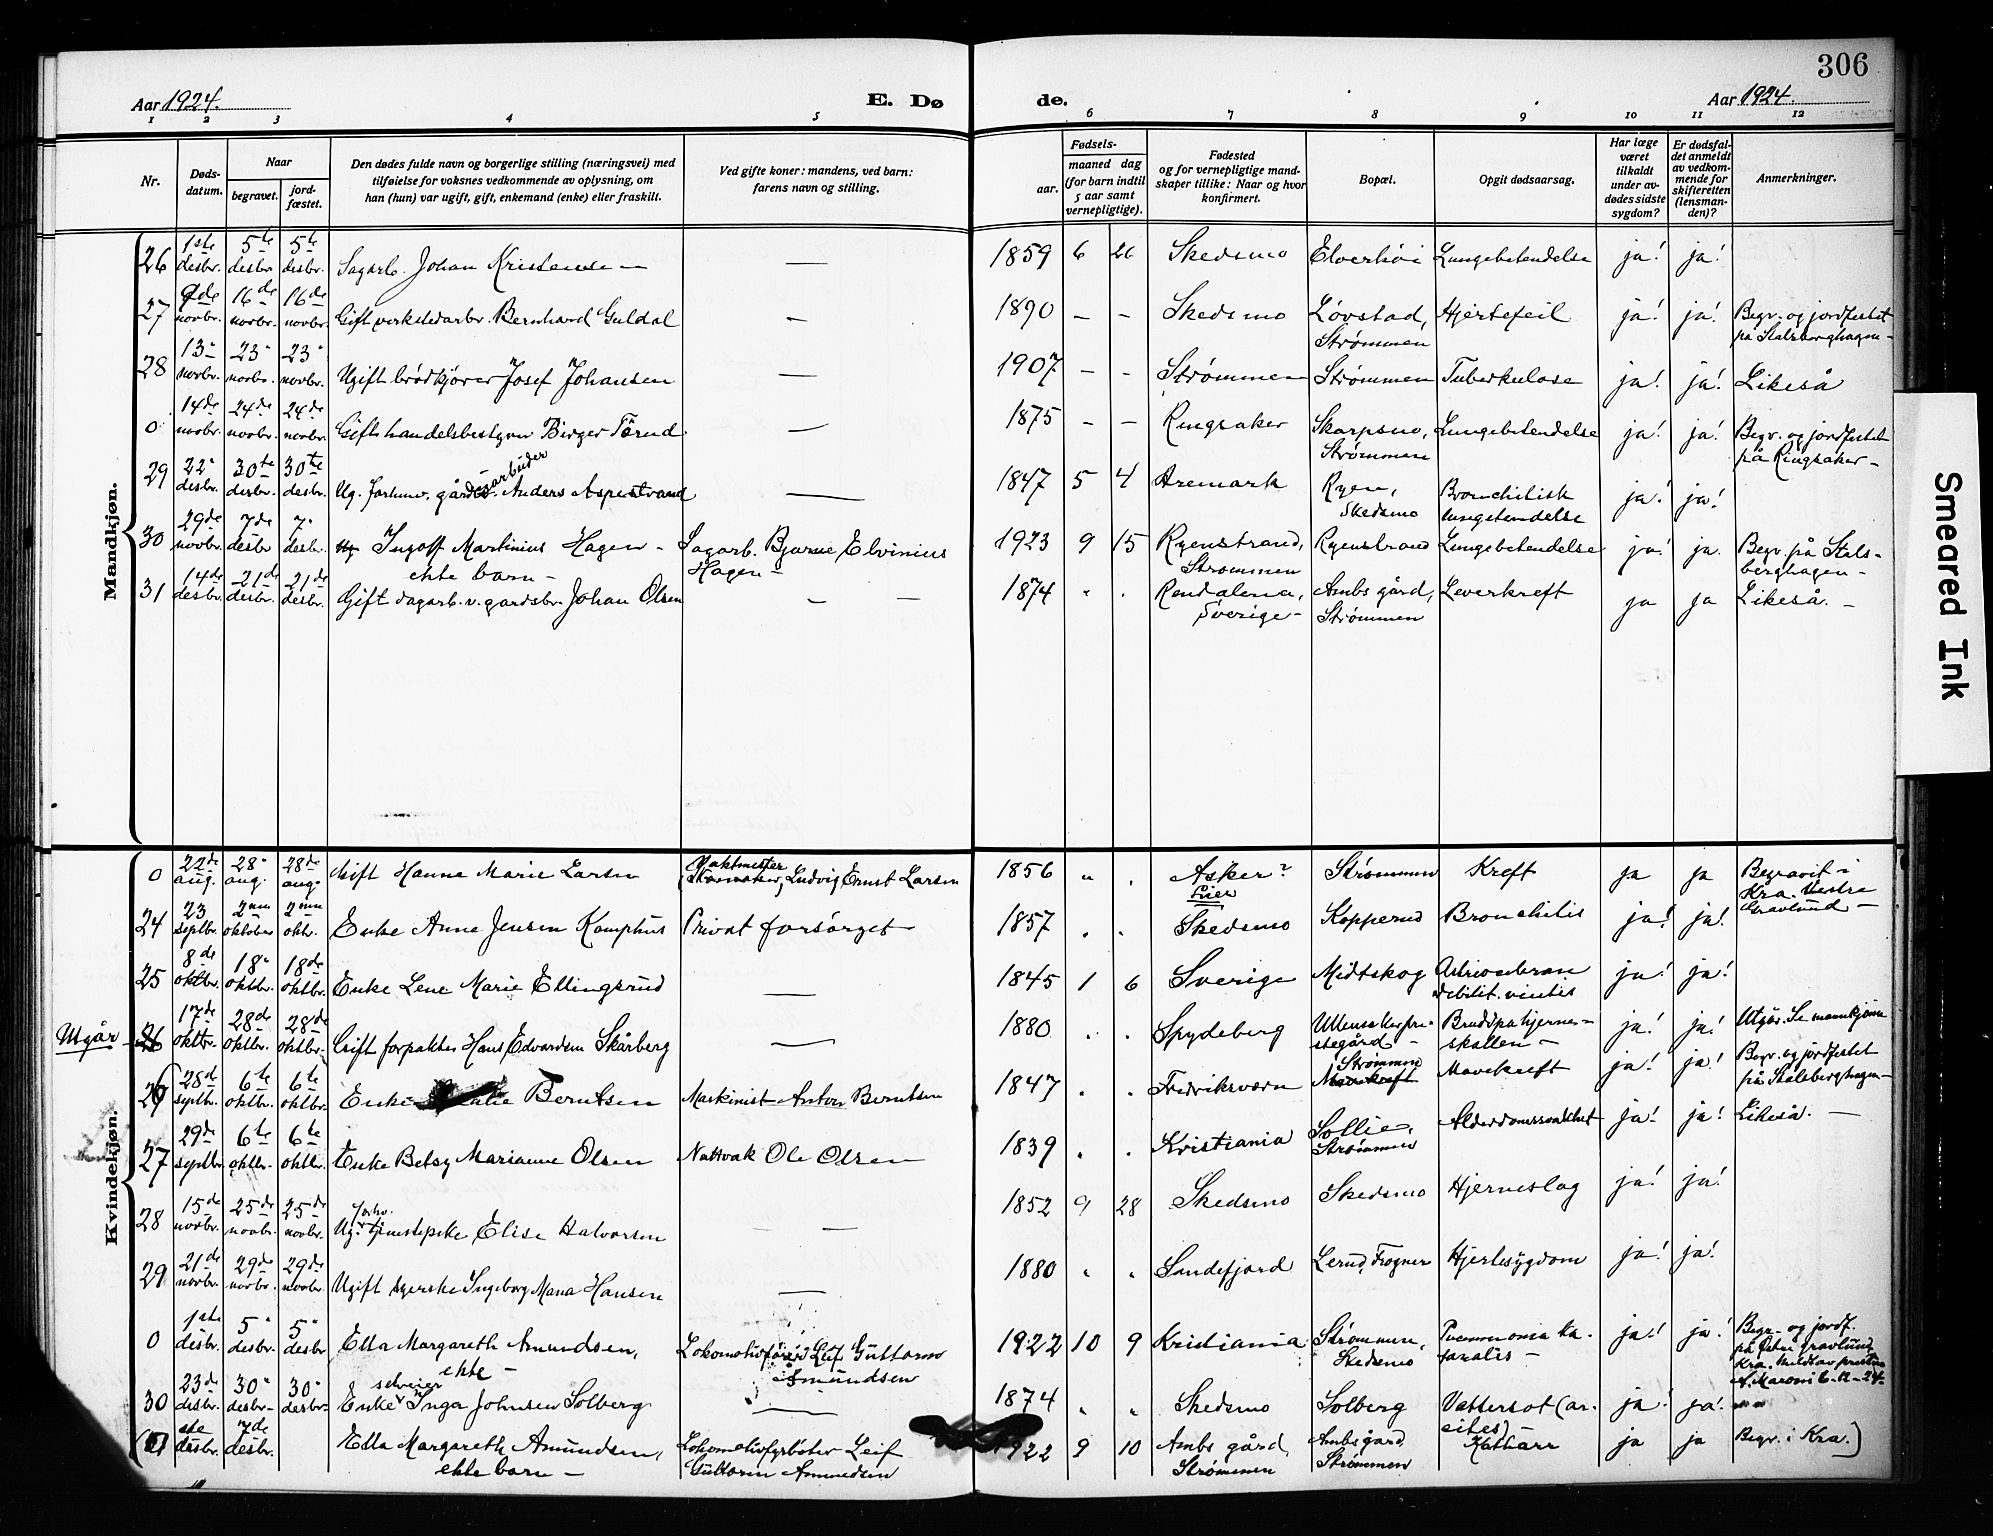 306
Aar 1924.
E. Dø
de.
Aar 1924.
1 2 3 4 5 6 7 8 9 10 11 12
Nr.
Døds-
datum.
Naar
begravet.
jord-
fæstet.
Den dødes fulde navn og borgerlige stilling (næringsvei) med
tilføielse for voksnes vedkommende av oplysning, om
han (hun) var ugift, gift, enkemand (enke) eller fraskilt.
Ved gifte koner: mandens, ved barn:
farens navn og stilling.
Fødsels-
aar.
maaned dag
(for barn indtil
5 aar samt
vernepligtige).
Fødested
og for vernepligtige mand-
skaper tillike: Naar og hvor
konfirmert.
Bopæl.
Opgit dødsaarsag.
Har læge
været
tilkaldt
under av-
dødes sidste
sygdom?
Er dødsfal-
det anmeldt
av vedkom-
mende for
skifteretten
(lensman-
den)?
Anmerkninger.
Mandkjøn.
26 1ste desbr. 5te desbr. 5te desbr. Sagarb. Johan Kristense — — 1859 6 26 Skedsmo Elverhöi Lungebetendelse ja! ja!
27 9de novbr. 16de novbr. 16de novbr. Gift verkstedarbr. Bernhard Guldal — 1890 – – Skedsmo Løvstad, Strømmen Hjertefeil ja! ja! Begr. og jordfestet på Stalsberghagen –
28 13" novbr. 23" novbr. 23" novbr. Ugift brödkjører Josef Johansen — 1907 – – Strømmen Strømmen Tuberkulose ja! ja! Likeså
0 14de novbr. 24de novbr. 24de novbr. Gift handelsbestyrer Birger Törud — 1875 – – Ringsaker Skarpsno, Strømmen Lungebetendelse ja! ja! Begr. og jordfestet på Ringsaker –
29 22" desbr. 30te desbr. 30te desbr. Ug. forhenv. gårdsarbeider Anders Aspestrand — 1847 5 4 Aremark Ryen, Skedsmo Bronchitisk lungebetendelse ja! ja!
30 29de novbr. 7de desbr. 7" desbr. Ingolf Martinius Hagen – ekte barn – Sagarb. Bjarne Elvinius Hagen – 1923 9 15 Ryenstrand, Strømmen Ryenstrand Lungebetendelse ja! ja. Begr. på Stals-berghagen –
31 14de desbr. 21de desbr. 21de desbr. Gift dagarb. v. gardsbr. Johan Olsen — 1874 " " Rendalena, Sverige – Ambs gård, Strømmen Leverkreft ja ja Likeså. –
Kvindekjøn.
0 22de aug. 28" aug. 28de aug. Gift Hanne Marie Larsen Vaktmester Ludvig Ernst Larsen 1856 " " Asker? Lier Strømmen Kreft ja ja Begravet i Kra. Vestre Gravlund –
24 23 septbr. 2nen oktober 2nen oktr. Enke Anne Jensen Kamphus Privat forsörget – 1857 " " Skedsmo Kopperud Bronchitis ja! ja!
25 8de oktbr. 18" oktbr. 18de oktbr. Enke Lene Marie Ellingsrud — 1845 1 6 Sverige Midtskog ja! ja!
Utgår 26 17de oktbr. 28de oktbr. 28de oktbr. Gift forpakter Hans Edvardsen Skårberg — 1880 " " Spydeberg Ullensaker pre-stegård – Brudd på hjerne-skallen – ja! ja! Utgår. Se mannkjönn
26 28d septbr. 6te oktbr. 6te oktbr. Enke Berntsen Maskinist Anton Berntsen 1847 " " Fredriksværn Strømmen Mavekreft Mavekreft ja! ja! Begr. og jordfestet på Stalsberghagen –
27 29de septbr 6te oktbr. 6te oktbr. Enke Betsy Marianne Olsen Nattvak Ole Olsen 1839 " " Kristiania Sollie, Strømmen Alderdomssvakhet ja! ja! Likeså. –
28 15de novbr. 25de novbr. 25de novbr. Ug. forhv. tjenestepike Elise Halvorsen — — 1852 9 28 Skedsmo Skedsmo Hjerneslag ja! ja!
29 21de novbr. 29de novbr. 29de novbr. Ugift syerske Ingeborg Maria Hansen — 1880 " " Sandefjord Lerud, Frogner Hjertesygdom ja! ja!
0 1ste desbr. 5" desbr. 5" desbr Ella Margareth Amundsen, ekte – Lokomotivfører Leif Guttorm Amundsen 1922 10 9 Kristiania Strømmen, Skedsmo Pneumonia ka-taralis – ja! ja! Begr. og jordf. på Østre gravlund, Kra. Meldt av presten N. Maroni 6-12-24.
30 23de desbr. 30" desbr. 30" desbr. Enke selveier Inga Johnsen Solberg — 1874 " " Skedsmo Solberg Vattersot (ar-cites) ja! ja!
(0 1ste desbr. 7de desbr. Ella Margareth Amundsen, ekte barn – Lokomotivfyrbøter Leif Guttorm Amundsen 1922 9 10 Ambs gård, Strømmen Ambs gård, Strømmen Katharr ja ja Begr. i Kra.)
Smeared Ink